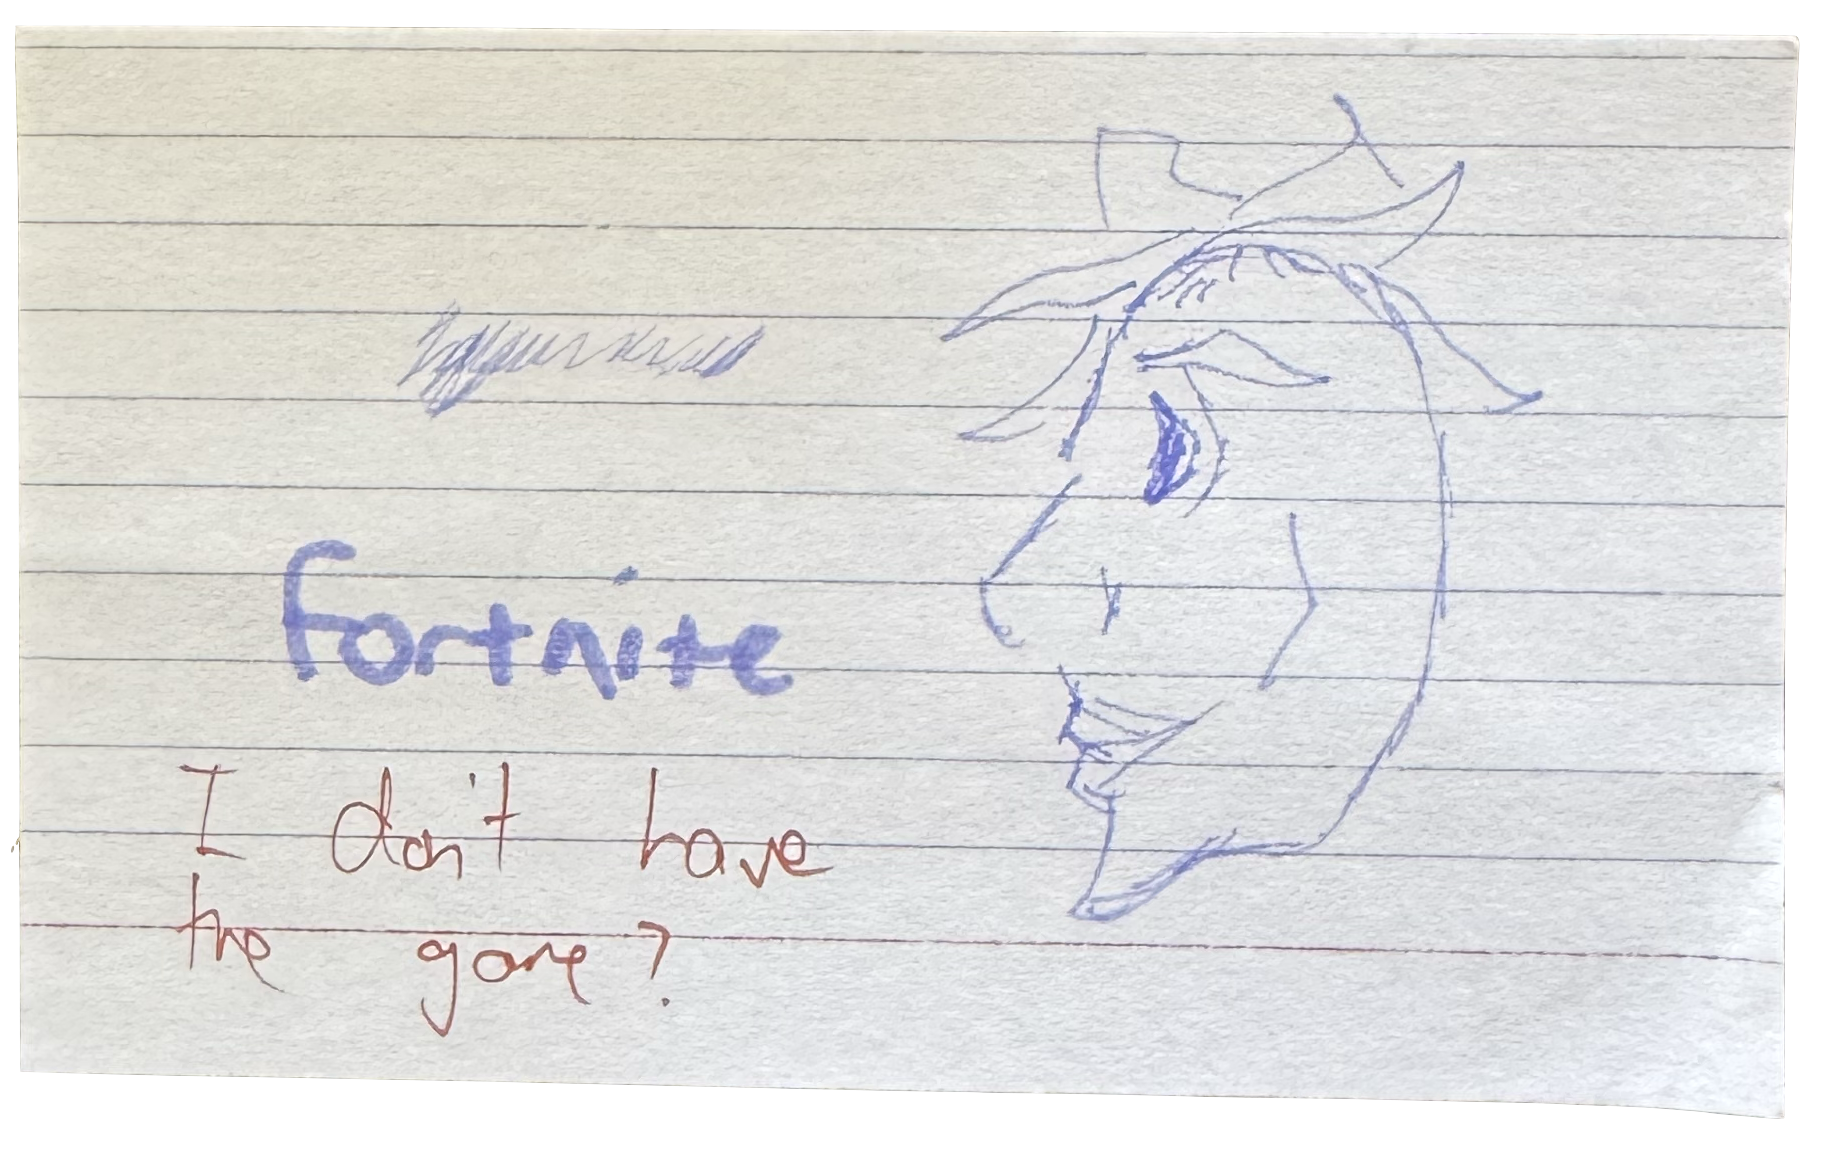 Fortnite
I don't have
the game?